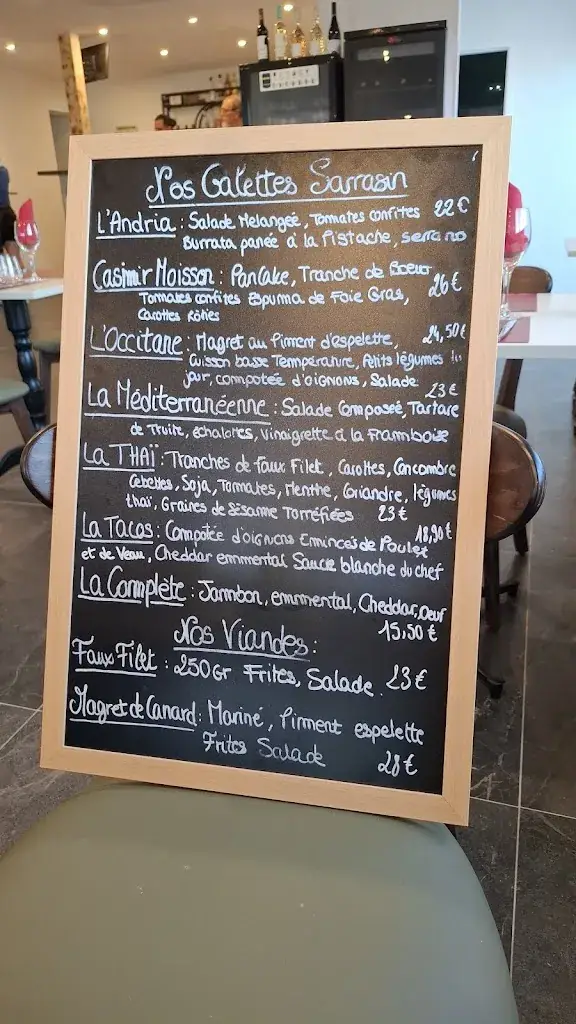 Nos Galettes Sarrasin
L'Andria : Salade Melangée, Tomates confites 22€
Burrata panée à la Pistache, serrano
Casimir Moisson : Pancake, Tranche de Boeuf
Tomates confites Espuma de Foie Gras, 26€
Carottes Rôties
L'Occitane : Magret au Piment d'espelette, 24,50€
Cuisson basse Température, Petits légumes du
jour, compotée d'oignons, Salade
La Méditerranéenne : Salade Composée, Tartare 23€
de Truite, échalottes, Vinaigrette à la Framboise
La THAÏ : Tranches de Faux Filet, Carottes, Concombre
Cebettes, Soja, Tomates, Menthe, Coriandre, légumes
thaï, Graines de Sésame Torréfiées 23€
La Tacos : Compotée d'oignons Emincés de Poulet 18,90€
et de Veau, Cheddar emmental Sauce blanche du chef
La Commplète : Jambon, emmental, Cheddar, Oeuf
15,50€
Nos Viandes :
Faux Filet : 250Gr Frites, Salade. 23€
Magret de Canard : Mariné, Piment espelette
Frites Salade 28€